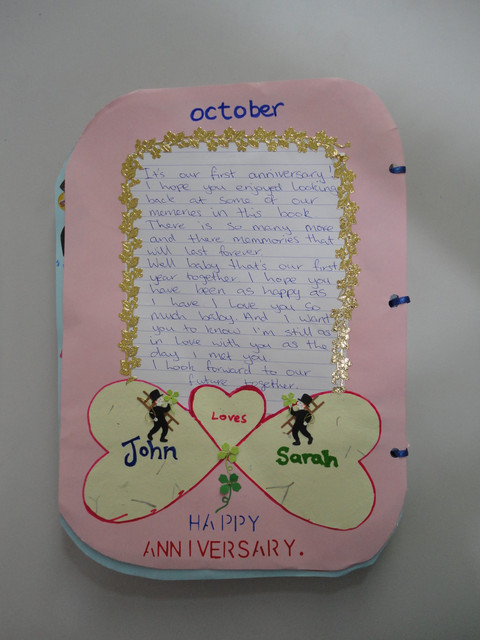 october
It's our first anniversary!
I hope you enjoyed looking
back at some of our
memeries in this book
There is so many more
and there memmories that
will last forever.
Well baby that's our first
year together I hope you
have been as happy as
I have I love you so
much baby. And I want
you to know I'm still as
in love with you as the
day I met you
I look forward to our
future together.
Loves
John
Sarah
HAPPY
ANNIVERSARY.